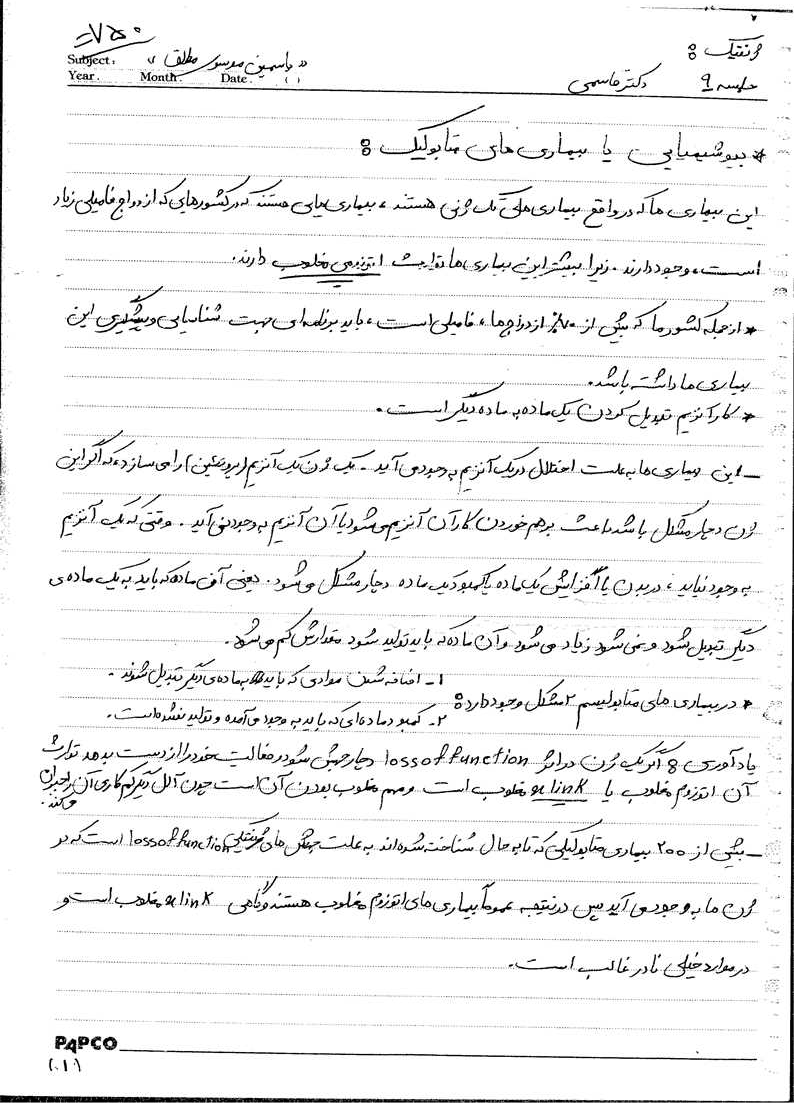 ژنتیک :
Subject: « یاسمین موسوی مطلق »
Year. Month. Date. ( )
جلسه ۹ دکتر قاسمی
* بیوشیمیایی یا بیماری های متابولیک :
این بیماری ها که در واقع بیماری های تک ژنی هستند ، بیماری هایی هستند که در کشورهایی که ازدواج فامیلی زیاد
است ، وجود دارند . زیرا بیشتر این بیماری ها توارث اتوزومی مغلوب دارند.
* از جمله کشور ما که بیش از ٪۷۰ ازدواج ها ، فامیلی است ، باید برنامه ای جهت شناسایی و پیشگیری این
بیماری ها داشته باشد.
* کار آنزیم تبدیل کردن یک ماده به ماده دیگر است .
ـ این بیماری ها به علت اختلال در یک آنزیم به وجود می آید . یک ژن یک آنزیم (پروتئین) را می سازد ، که اگر این
ژن دچار مشکل باشد باعث برهم خوردن کار آن آنزیم می شود یا آن آنزیم به وجود نمی آید . وقتی که یک آنزیم
به وجود نیاید ، در بدن یا افزایش یک ماده یا کمبود یک ماده دچار مشکل می شود . یعنی آن ماده که باید به یک ماده ی
دیگر تبدیل شود و نمی شود زیاد می شود و آن ماده که باید تولید شود مقدارش کم می شود.
* در بیماری های متابولیسم ۲ مشکل وجود دارد :
۱ـ اضافه شدن موادی که باید به ماده ی دیگر تبدیل شوند .
۲ـ کمبود ماده ای که باید به وجود می آمده و تولید نشده است .
یادآوری : اگر یک ژن در اثر loss of function دچار جهش شود و فعالیت خود را از دست بدهد توارث
آن اتوزوم مغلوب یا x link مغلوب است و مهم مغلوب بودن آن است چون آلل دیگر کم کاری آن را جبران
می کند.
ـ بیش از ۲۰۰ بیماری متابولیکی که تا به حال شناخته شده اند به علت جهش های ژنتیکی loss of function است که در
ژن ها به وجود می آید پس در نتیجه عموماً بیماری های اتوزوم مغلوب هستند و گاهی x link مغلوب است و
در موارد خیلی نادر غالب است .
PAPCO
(۰۱)